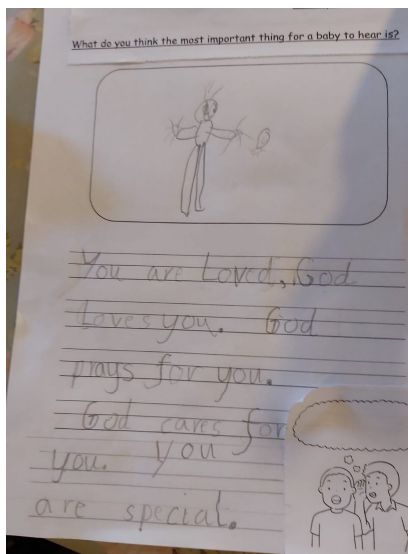 What do you think the most important thing for a baby to hear is?
You are Loved, God
Loves you. God
prays for you.
God cares for
you. you
are special.